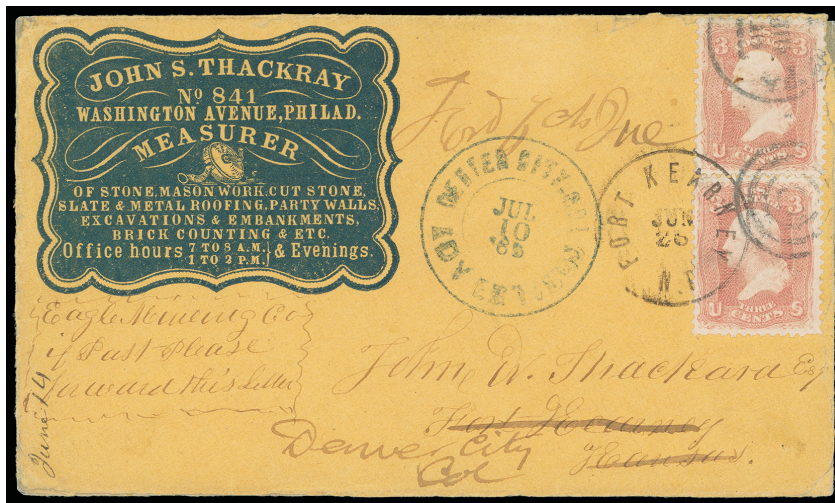 JOHN S. THACKRAY
No 841
WASHINGTON AVENUE, PHILAD.
MEASURER
OF STONE, MASON WORK, CUT STONE,
SLATE & METAL ROOFING, PARTY WALLS,
EXCAVATIONS & EMBANKMENTS,
BRICK COUNTING & ETC.
Office hours { 7 TO 8 A.M. } & Evenings.
1 TO 2 P.M.
Ford
Due
3 3
THREE
U CENTS S
DENVER CITY
JUL
10
65
FORT KEARNEY
JUN
26
N.T.
3
U THREE S
CENTS
Eagle Mineing Co
if Past Please
forward this Letter
June 14
John W. Thackara Esq
Fort Kearney
Kansas.
Denver City
Col